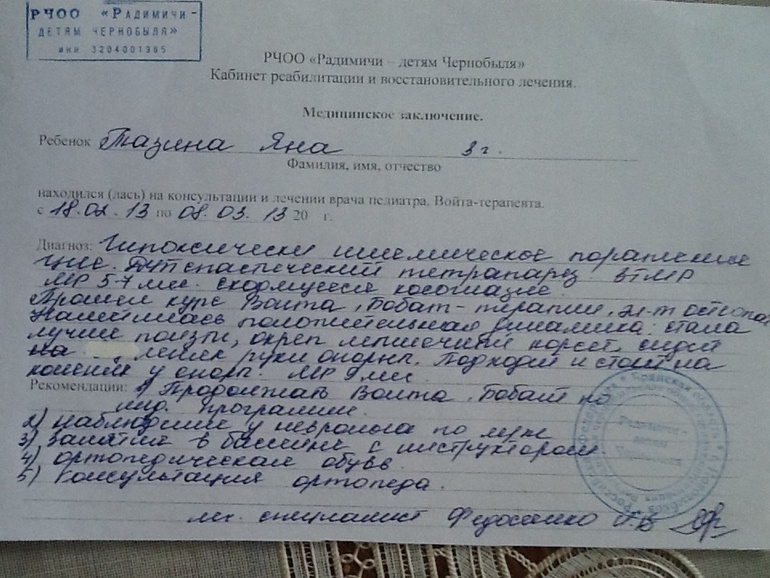 РЧОО «РАДИМИЧИ -
ДЕТЯМ ЧЕРНОБЫЛЯ»
ИНН 3204001985
РЧОО «Радимичи – детям Чернобыля»
Кабинет реабилитации и восстановительного лечения.
Медицинское заключение.
Ребенок Тазина Яна 3 г.
Фамилия, имя, отчество
находился (лась) на консультации и лечении врача педиатра, Войта-терапевта.
с 18.02.13 по 08.03.13 20 г.
Диагноз: Гипоксически ишемическое поражение
ЦНС. спастический тетрапарез ЗПМР
МР 5-7 мес. сходящееся косоглазие.
Прошел курс Войта, Бобат-терапии,
Наметилась положительная динамика: стала
лучше ползти, окреп мышечный корсет, сидит
на руки опоры. Подходит и стоит на
коленях у опоры. МР 9 мес.
Рекомендации: 1) Продолжать Войта, Бобат по
инд. программе.
2) наблюдение у невролога по м/ж
3) занятие в бассейне с инструктором
4) ортопедическая обувь.
5) консультация ортопеда.
специалист Федосенко
Радимичи -
детям
Чернобыля